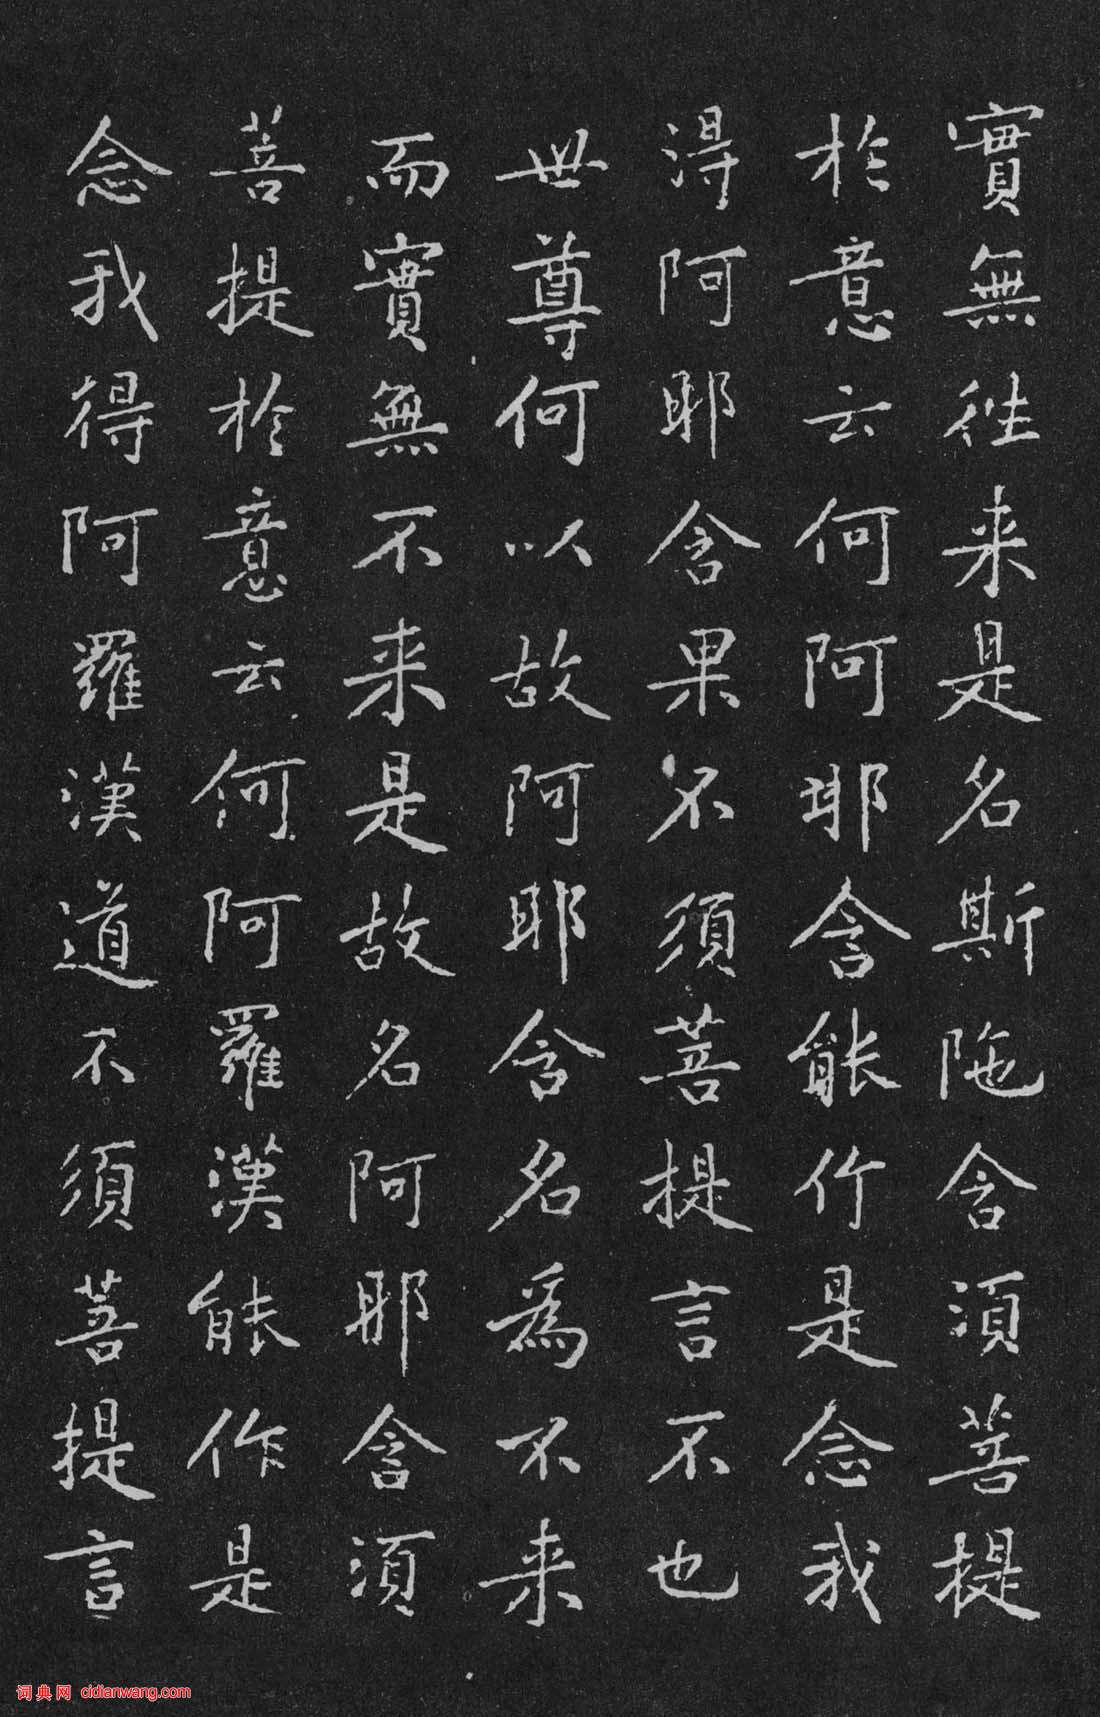 實無往来是名斯陁含須菩提
於意云何阿耶含能作是念我
得阿耶含果不須菩提言不也
世尊何以故阿耶含名為不来
而實無不来是故名阿耶含須
菩提於意云何阿羅漢能作是
念我得阿羅漢道不須菩提言
词典网 cidianwang.com